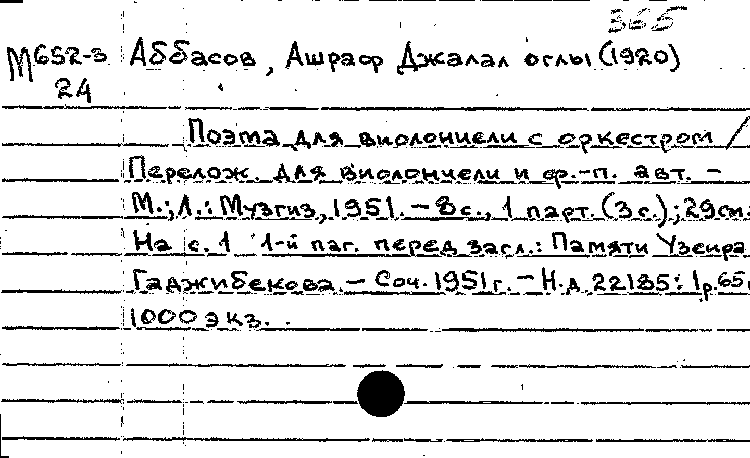 365
М652-3 Аббасов, Ашраф Джалал оглы (1920)
24
Поэма для виолончели с оркестром /
Перелож. для виолончели и ф.-п. авт. –
М.; Л.: Музгиз, 1951. – 8 с., 1 парт. (3 с.); 29 см.
На с. 1 1-й паг. перед загл.: Памяти Узеира
Гаджибекова. – Соч. 1951 г. – Н.д. 22185: 1р.65
1000 экз.